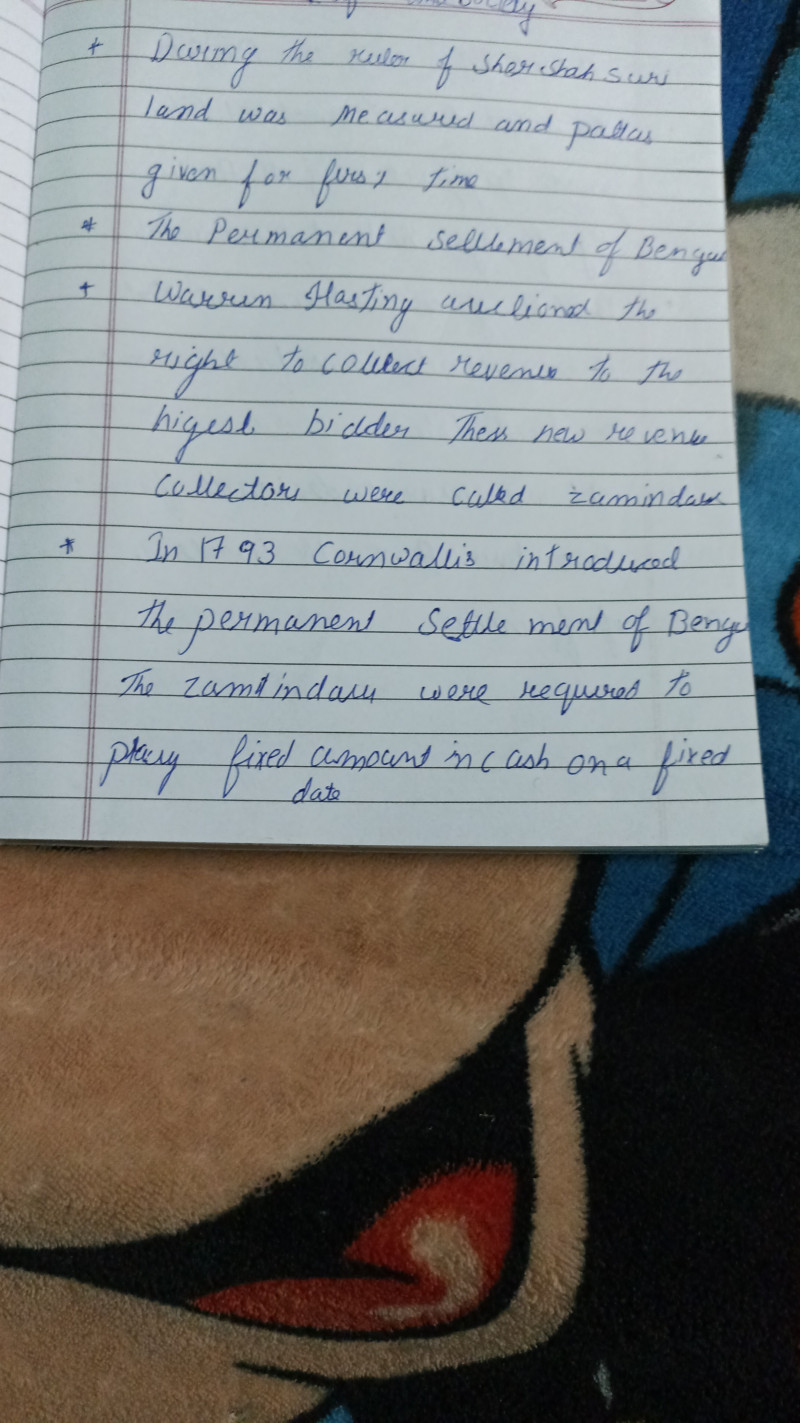 Society
* During the ruler of Sher Shah Suri
land was measured and pattas
given for first time
* The Permanent settlement of Bengal
* Warren Hasting auctioned the
right to collect revenue to the
higest bidder Thess new revenue
collectors were called zamindars
* In 1793 Cornwallis introduced
the permanent Settle ment of Benga
The zamindars were required to
pay fixed amount in cash on a fixed
date